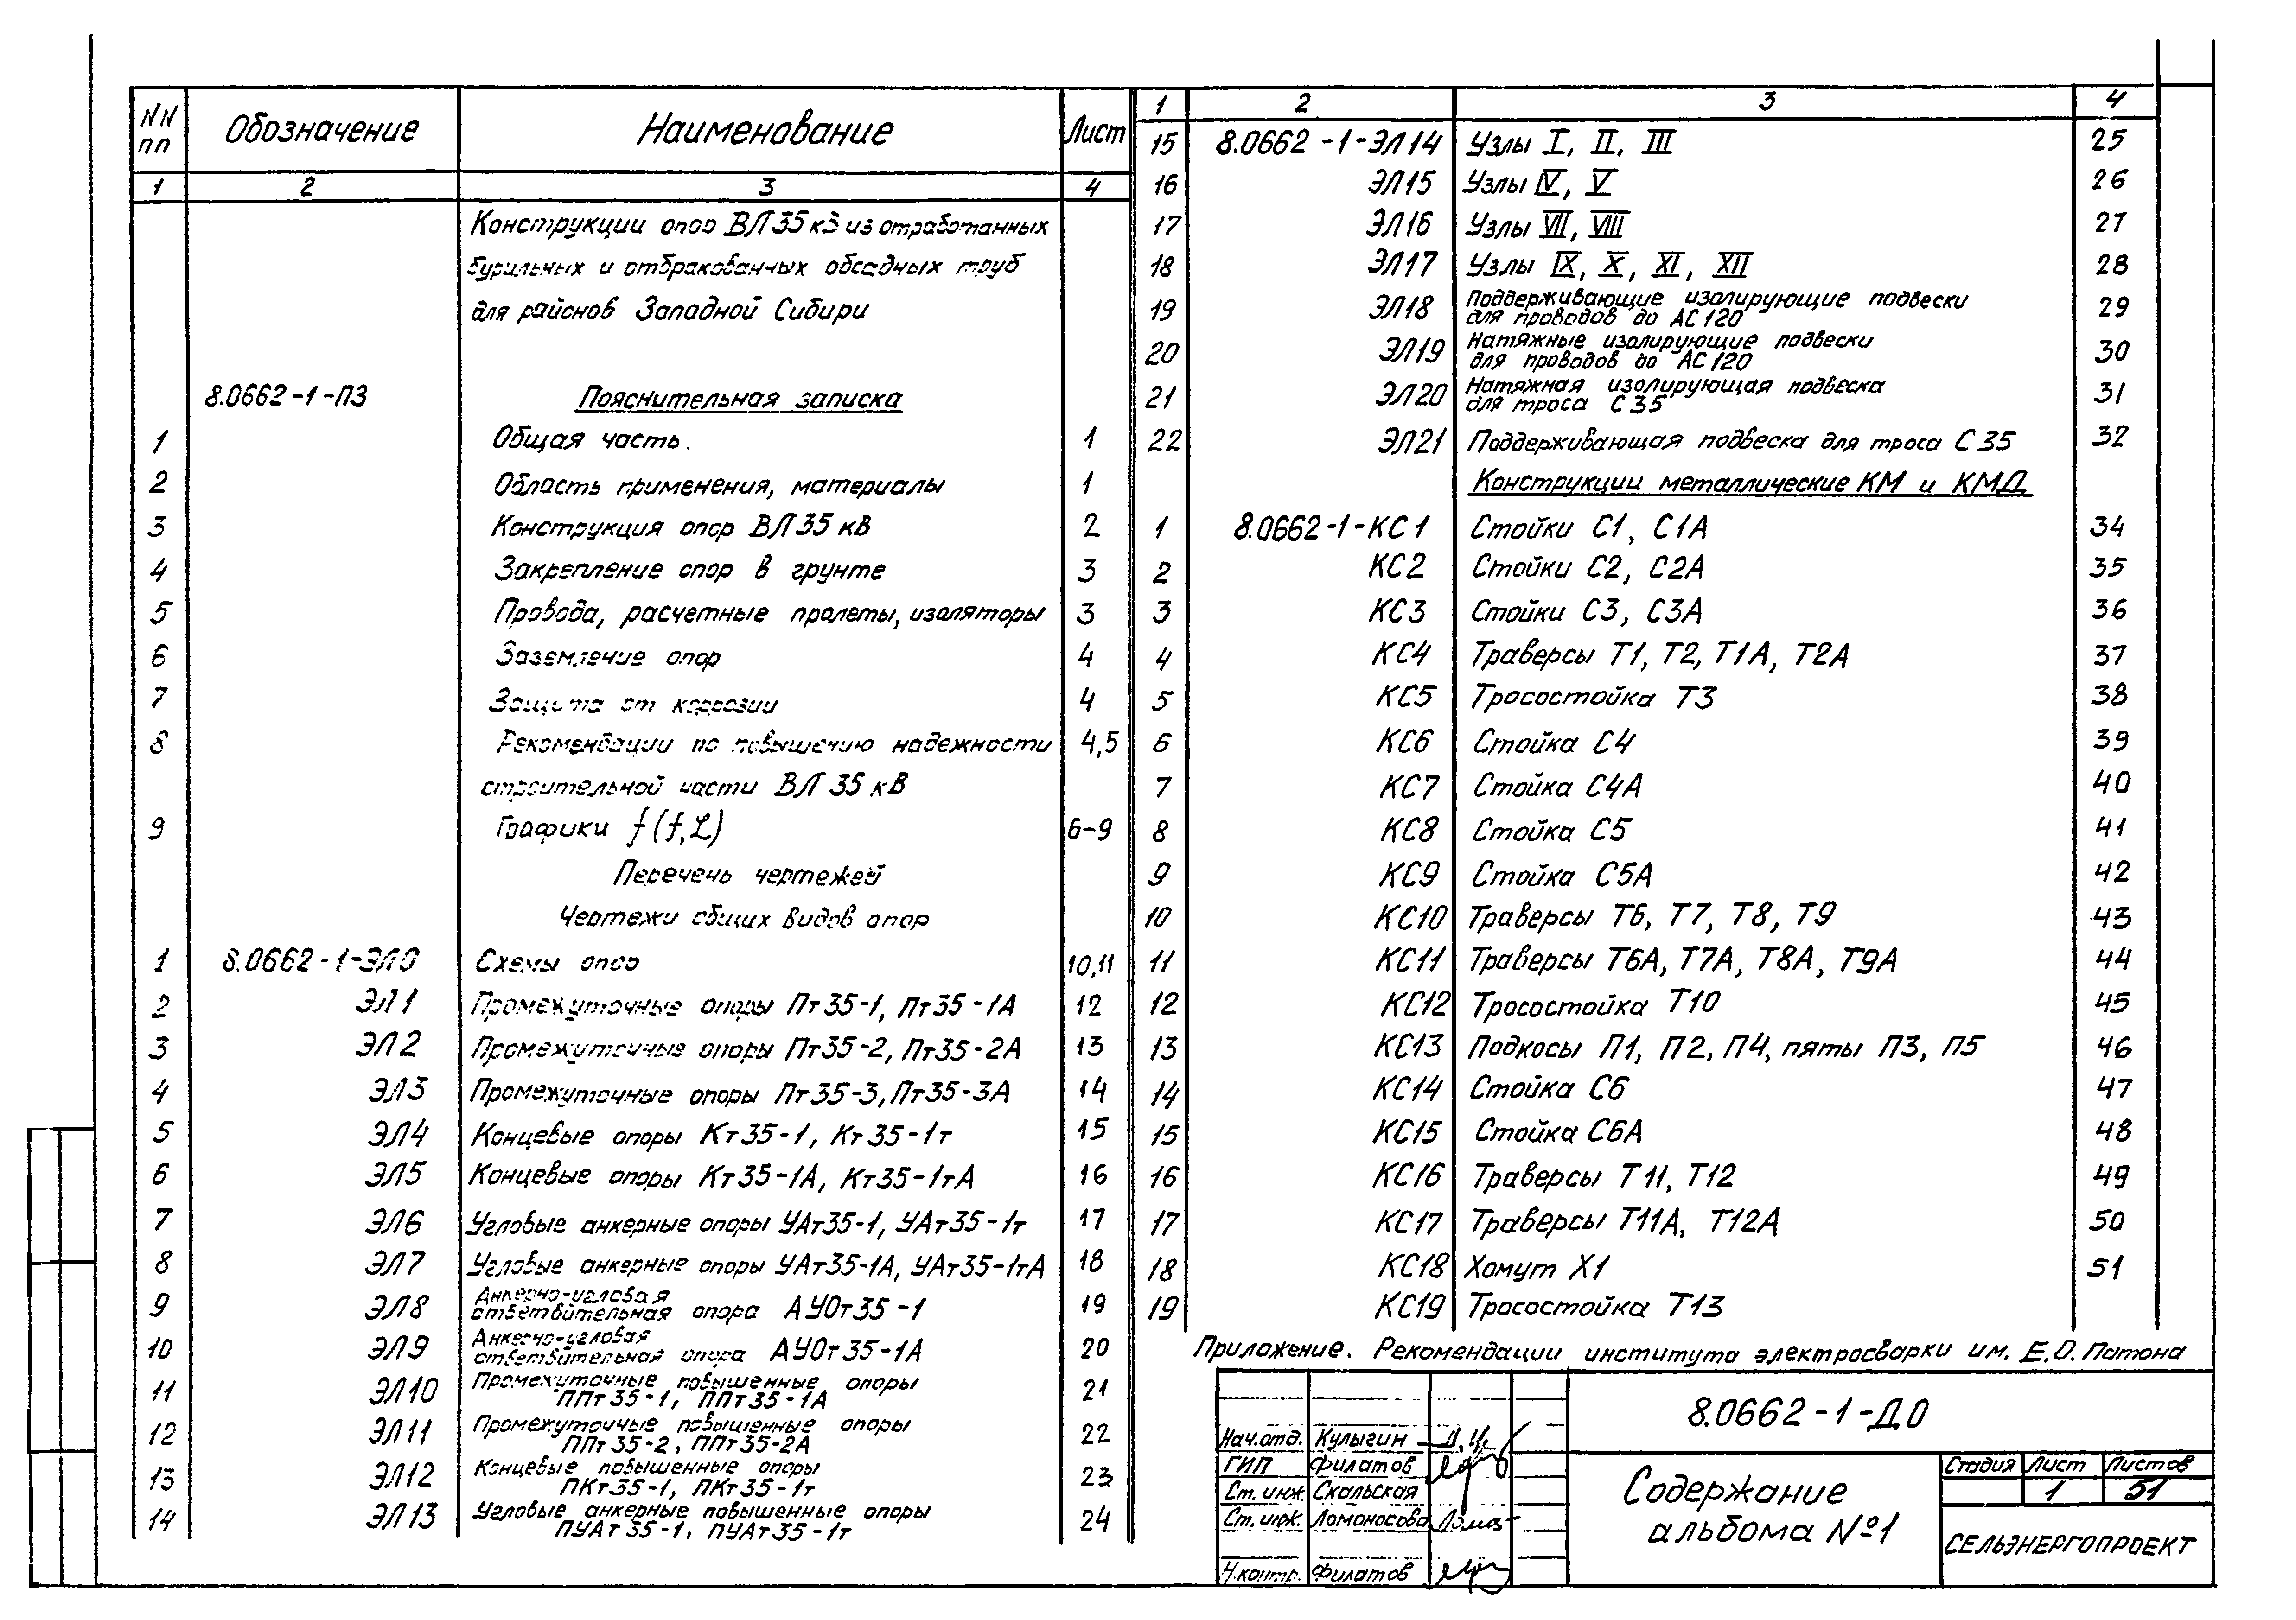 NN пп Обозначение Наименование Лист
1 2 3 4
Конструкции опор ВЛ 35 кВ из отработанных
бурильных и отбракованных обсадных труб
для районов Западной Сибири
8.0662-1-ПЗ Пояснительная записка
1 Общая часть. 1
2 Область применения, материалы 1
3 Конструкция опор ВЛ 35 кВ 2
4 Закрепление опор в грунте 3
5 Провода, расчетные пролеты, изоляторы 3
6 Заземление опор 4
7 Защита от коррозии 4
8 Рекомендации по повышению надежности 4,5
строительной части ВЛ 35 кВ
9 Графики f (f, L) 6-9
Перечень чертежей
Чертежи общих видов опор
1 8.0662-1-ЭЛ0 Схемы опор 10,11
2 ЭЛ1 Промежуточные опоры Пт35-1, Пт35-1А 12
3 ЭЛ2 Промежуточные опоры Пт35-2, Пт35-2А 13
4 ЭЛ3 Промежуточные опоры Пт35-3, Пт35-3А 14
5 ЭЛ4 Концевые опоры Кт35-1, Кт35-1т 15
6 ЭЛ5 Концевые опоры Кт35-1А, Кт35-1тА 16
7 ЭЛ6 Угловые анкерные опоры УАт35-1, УАт35-1т 17
8 ЭЛ7 Угловые анкерные опоры УАт35-1А, УАт35-1тА 18
9 ЭЛ8 Анкерно-угловая
ответвительная опора АУОт35-1 19
10 ЭЛ9 Анкерно-угловая
ответвительная опора АУОт35-1А 20
11 ЭЛ10 Промежуточные повышенные опоры
ППт35-1, ППт35-1А 21
12 ЭЛ11 Промежуточные повышенные опоры
ППт35-2, ППт35-2А 22
13 ЭЛ12 Концевые повышенные опоры
ПКт35-1, ПКт35-1т 23
14 ЭЛ13 Угловые анкерные повышенные опоры
ПУАт35-1, ПУАт35-1т 24
1 2 3 4
15 8.0662-1-ЭЛ14 Узлы I, II, III 25
16 ЭЛ15 Узлы IV, V 26
17 ЭЛ16 Узлы VII, VIII 27
18 ЭЛ17 Узлы IX, X, XI, XII 28
19 ЭЛ18 Поддерживающие изолирующие подвески
для проводов до АС120 29
20 ЭЛ19 Натяжные изолирующие подвески
для проводов до АС120 30
21 ЭЛ20 Натяжная изолирующая подвеска
для троса С35 31
22 ЭЛ21 Поддерживающая подвеска для троса С35 32
Конструкции металлические КМ и КМД
1 8.0662-1-КС1 Стойки С1, С1А 34
2 КС2 Стойки С2, С2А 35
3 КС3 Стойки С3, С3А 36
4 КС4 Траверсы Т1, Т2, Т1А, Т2А 37
5 КС5 Тросостойка Т3 38
6 КС6 Стойка С4 39
7 КС7 Стойка С4А 40
8 КС8 Стойка С5 41
9 КС9 Стойка С5А 42
10 КС10 Траверсы Т6, Т7, Т8, Т9 43
11 КС11 Траверсы Т6А, Т7А, Т8А, Т9А 44
12 КС12 Тросостойка Т10 45
13 КС13 Подкосы П1, П2, П4, пяты П3, П5 46
14 КС14 Стойка С6 47
15 КС15 Стойка С6А 48
16 КС16 Траверсы Т11, Т12 49
17 КС17 Траверсы Т11А, Т12А 50
18 КС18 Хомут Х1 51
19 КС19 Тросостойка Т13
Приложение. Рекомендации института электросварки им. Е.О. Патона
8.0662-1-Д0
Нач.отд. Кулыгин
ГИП Филатов
Ст. инж. Скальская
Ст. инж. Ломоносова
Н.контр. Филатов
Содержание
альбома №1
Стадия Лист Листов
1 51
СЕЛЬЭНЕРГОПРОЕКТ